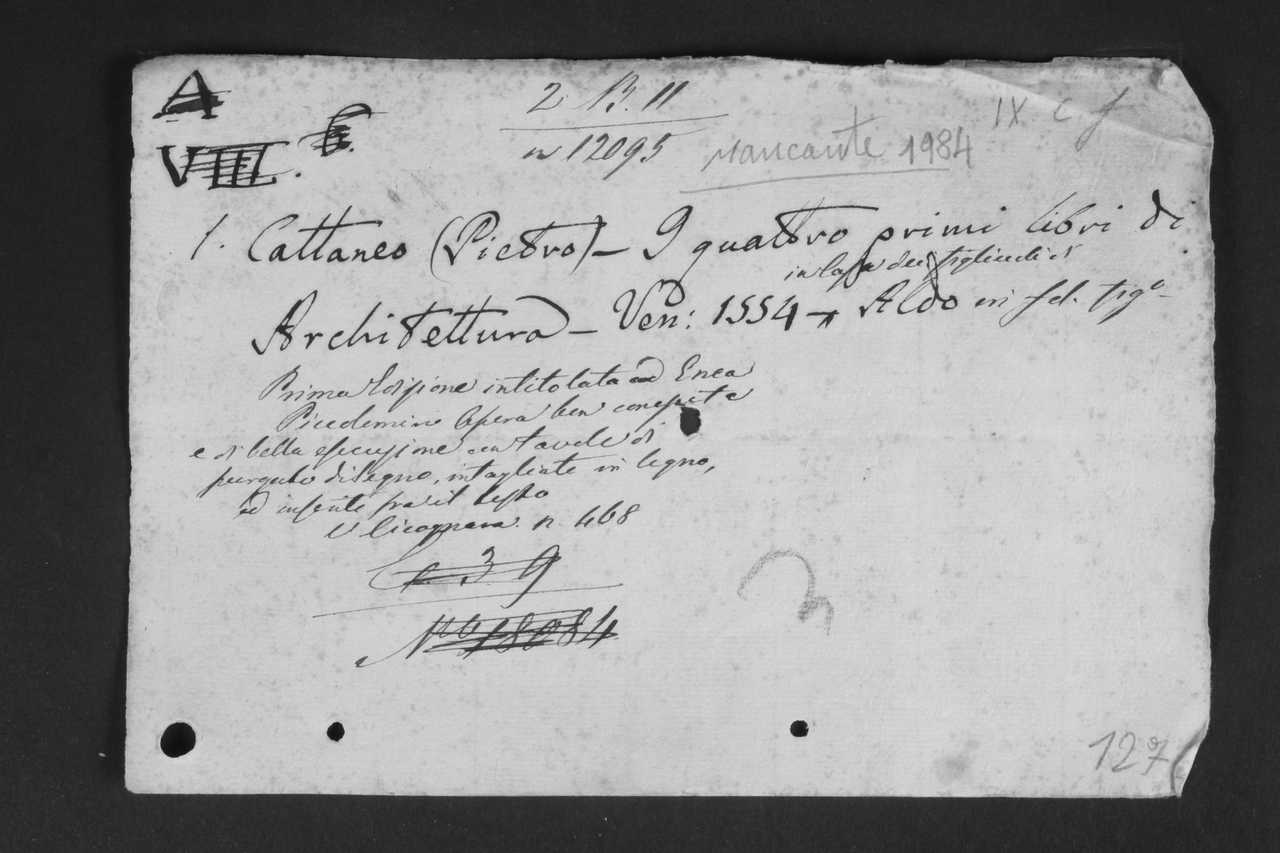 A
VIII. 6.
2 B. 11
n 12095
mancante 1984
IX c f
1. Cattaneo (Pietro) – I quattro primi libri di
in casa dei figliuoli di
Architettura – Ven: 1554 – Aldo in fol. fig.
Prima Edizione intitolata ad Enea
Picolomini Opera ben concepita
e di bella esecuzione con tavole di
purgato disegno, intagliate in legno,
ed inserite fra il testo
V. Cicognara n. 468
C 3 9
No 18084
127